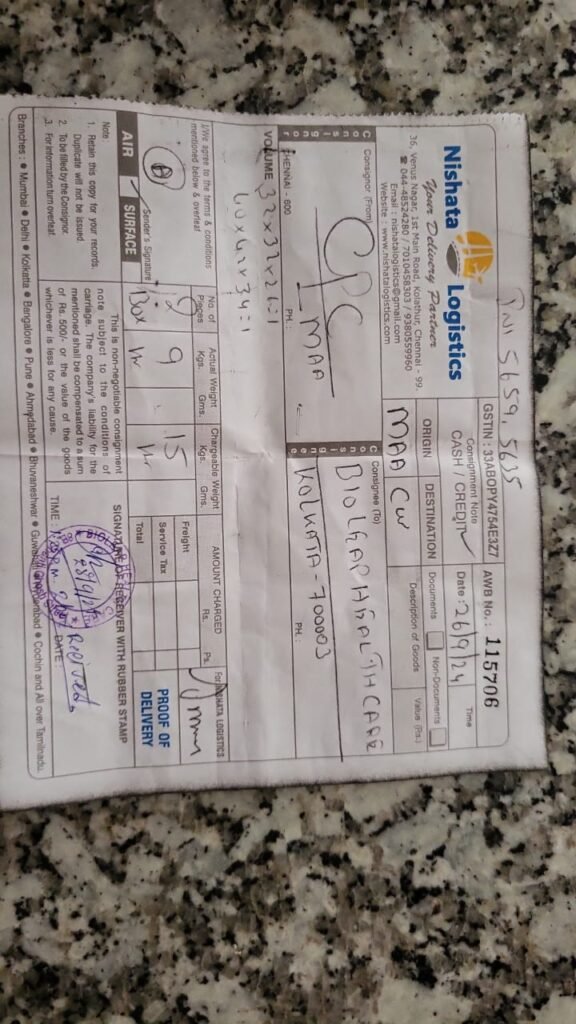 INV 5659, 5635
Nishata Logistics
Your Delivery Partner
36, Venus Nagar, 1st Main Road, Kolathur, Chennai - 99.
☎ 044-48524280 / 7010458303 / 9380559960
Email : nishatalogistics@gmail.com
Website : www.nishatalogistics.com
GSTIN: 33ABOPY4754E3Z7
AWB No.: 115706
Consignment Note
CASH / CREDIT
Date : 26/9/24
Time
ORIGIN
DESTINATION
Documents
Non-Documents
MAA
CCU
Description of Goods
Value (Rs.)
Consignor
Consignor (From)
CPC
MAA
CHENNAI - 600
PH.:
Consignee
Consignee (To)
BIOLEAP HEALTHCARE
KOLKATA - 700003
PH.:
VOLUME 32x32x26=1
40x42x34=1
I/We agree to the terms & conditions
mentioned below & overleaf
Sender's Signature
No. of
Pieces
Box
Actual Weight
Kgs. Gms.
9
Chargeable Weight
Kgs. Gms.
15
AMOUNT CHARGED
Rs. Ps.
Freight
Service Tax
Total
For NISHATA LOGISTICS
PROOF OF
DELIVERY
AIR SURFACE
Note
1. Retain this copy for your records.
Duplicate will not be issued.
2. To be filled by the Consignor.
3. For information turn overleaf.
This is non-negotiable consignment
note subject to the conditions of
carriage. The company's liability for the
mentioned shall be compensated to a sum
of Rs. 500/- or the value of the goods
whichever is less for any cause.
SIGNATURE OF RECEIVER WITH RUBBER STAMP
Received
TIME :
DATE :
Branches : ● Mumbai ● Delhi ● Kolkatta ● Bangalore ● Pune ● Ahmedabad ● Bhuvaneshwar ● Guwahati ● Hyderabad ● Cochin and All over Tamilnadu.